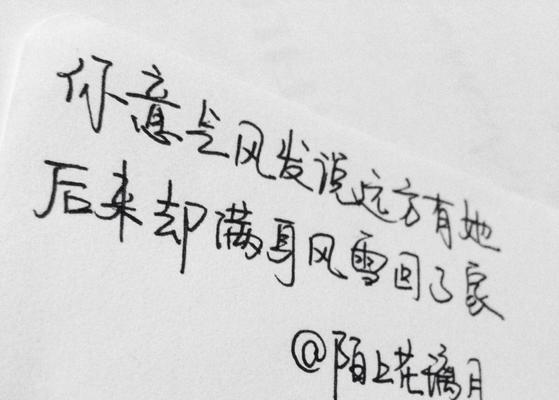 你意气风发说远方有她
后来却满身风雪回了家
@陌上花漓月